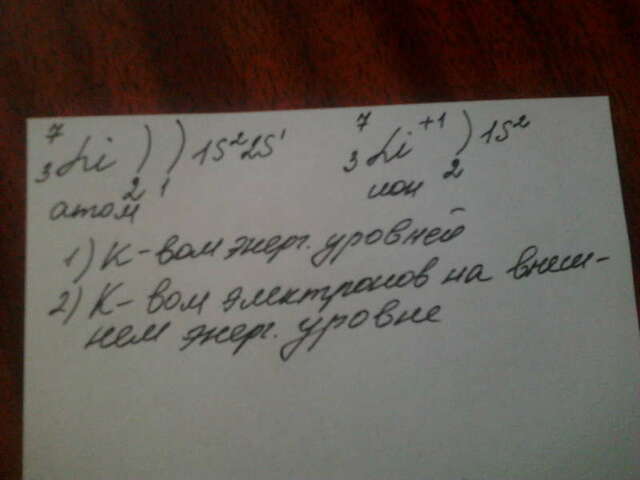 7 7
₃Li ) ) 1S²2S¹ ₃Li⁺¹ ) 1S²
2 1 2
атом ион
1) К-вом энерг. уровней
2) К-вом электронов на внеш-
нем энерг. уровне